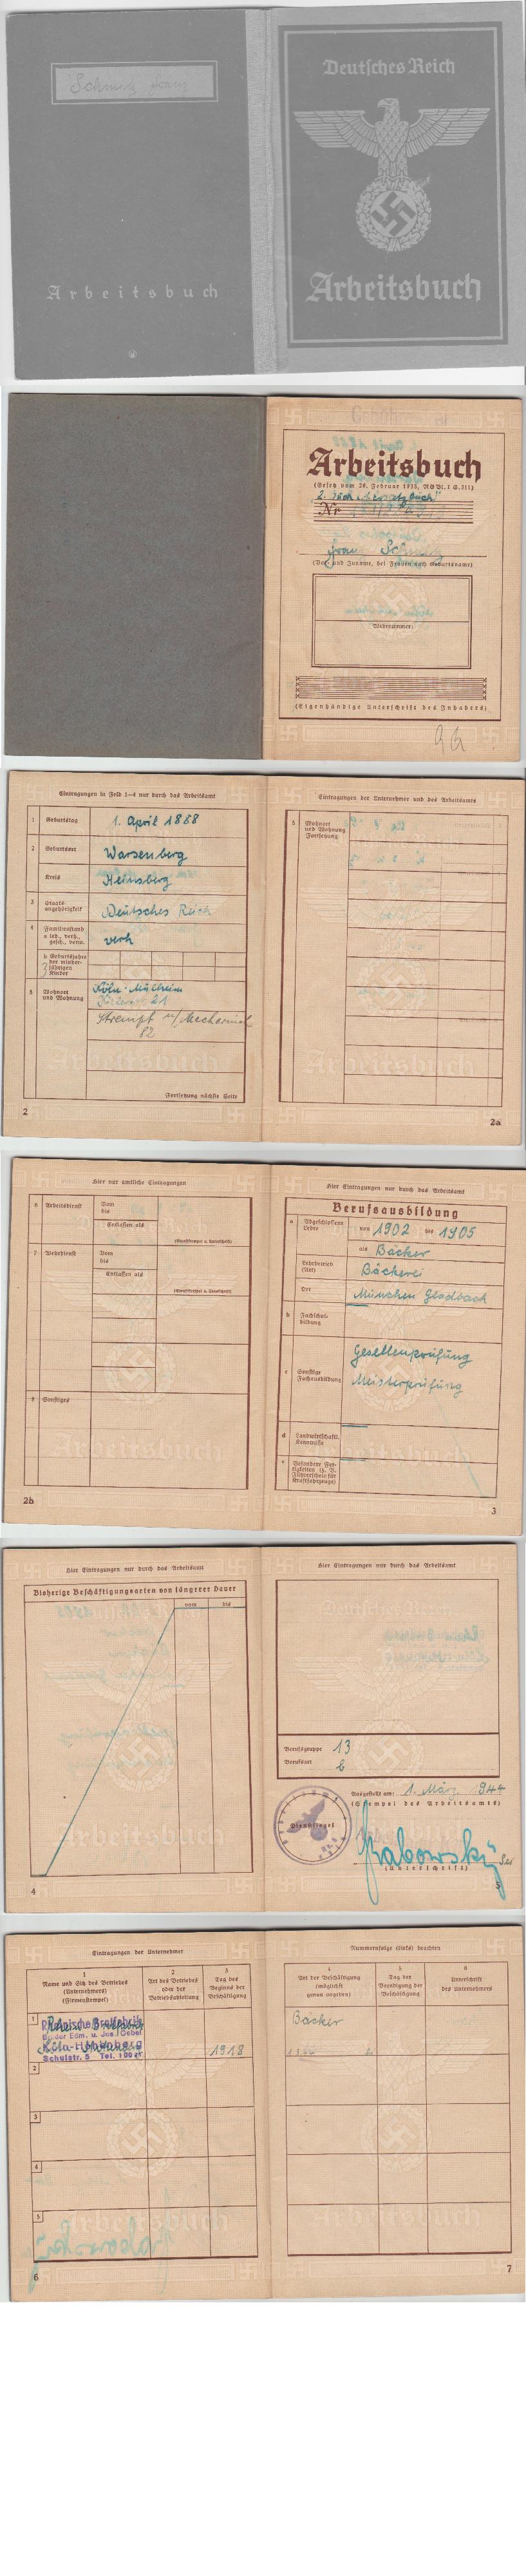 Deutsches Reich
Arbeitsbuch
Arbeitsbuch
Arbeitsbuch
(Gesetz vom 26. Februar 1935, RGBl. I S. 311)
Nr
Franz
(Vor- und Zuname, bei Frauen auch Geburtsname)
Wehrnummer:
(Eigenhändige Unterschrift des Inhabers)
Eintragungen in Feld 1–4 nur durch das Arbeitsamt
1 Geburtstag 1. April 1888
2 Geburtsort
Kreis Heinsberg
3 Staatsangehörigkeit Deutsches Reich
4 Familienstand
a led., verh., gesch., verw. verh
b Geburtsjahre der minderjährigen Kinder
5 Wohnort und Wohnung Köln-Mülheim
21
Strempt
82
Fortsetzung nächste Seite
2
Eintragungen der Unternehmer und des Arbeitsamts
5 Wohnort und Wohnung Fortsetzung
2a
Hier nur amtliche Eintragungen
6 Arbeitsdienst
Vom
bis
Entlassen als
7 Wehrdienst
Vom
bis
Entlassen als
8 Sonstiges
2b
Hier Eintragungen nur durch das Arbeitsamt
Berufsausbildung
a Abgeschlossene Lehre von 1902 bis 1905
als Bäcker
Lehrbetrieb (Art) Bäckerei
Ort München Gladbach
b Fachschulbildung
c Sonstige Fachausbildung Gesellenprüfung
Meisterprüfung
d Landwirtschaftl. Kenntnisse
e Besondere Fertigkeiten (z. B. Führerschein für Kraftfahrzeuge)
3
Hier Eintragungen nur durch das Arbeitsamt
Bisherige Beschäftigungsarten von längerer Dauer
vom bis
4
Hier Eintragungen nur durch das Arbeitsamt
Berufsgruppe 13
Berufsart b
Ausgestellt am: 1. März 1944
(Stempel des Arbeitsamts)
Dienstsiegel
Grabowsky
(Unterschrift)
5
Eintragungen der Unternehmer
1 2 3
Name und Sitz des Betriebes (Unternehmers) (Firmenstempel)
Art des Betriebes oder der Betriebsabteilung
Tag des Beginns der Beschäftigung
1
Rheinische Brotfabrik
Edm. u. Jos.
Schulstr. 5 Tel.
1918
2
3
4
5
6
Nummernfolge (links) beachten
4 5 6
Art der Beschäftigung (möglichst genau angeben)
Tag der Beendigung der Beschäftigung
Unterschrift des Unternehmers
Bäcker
7